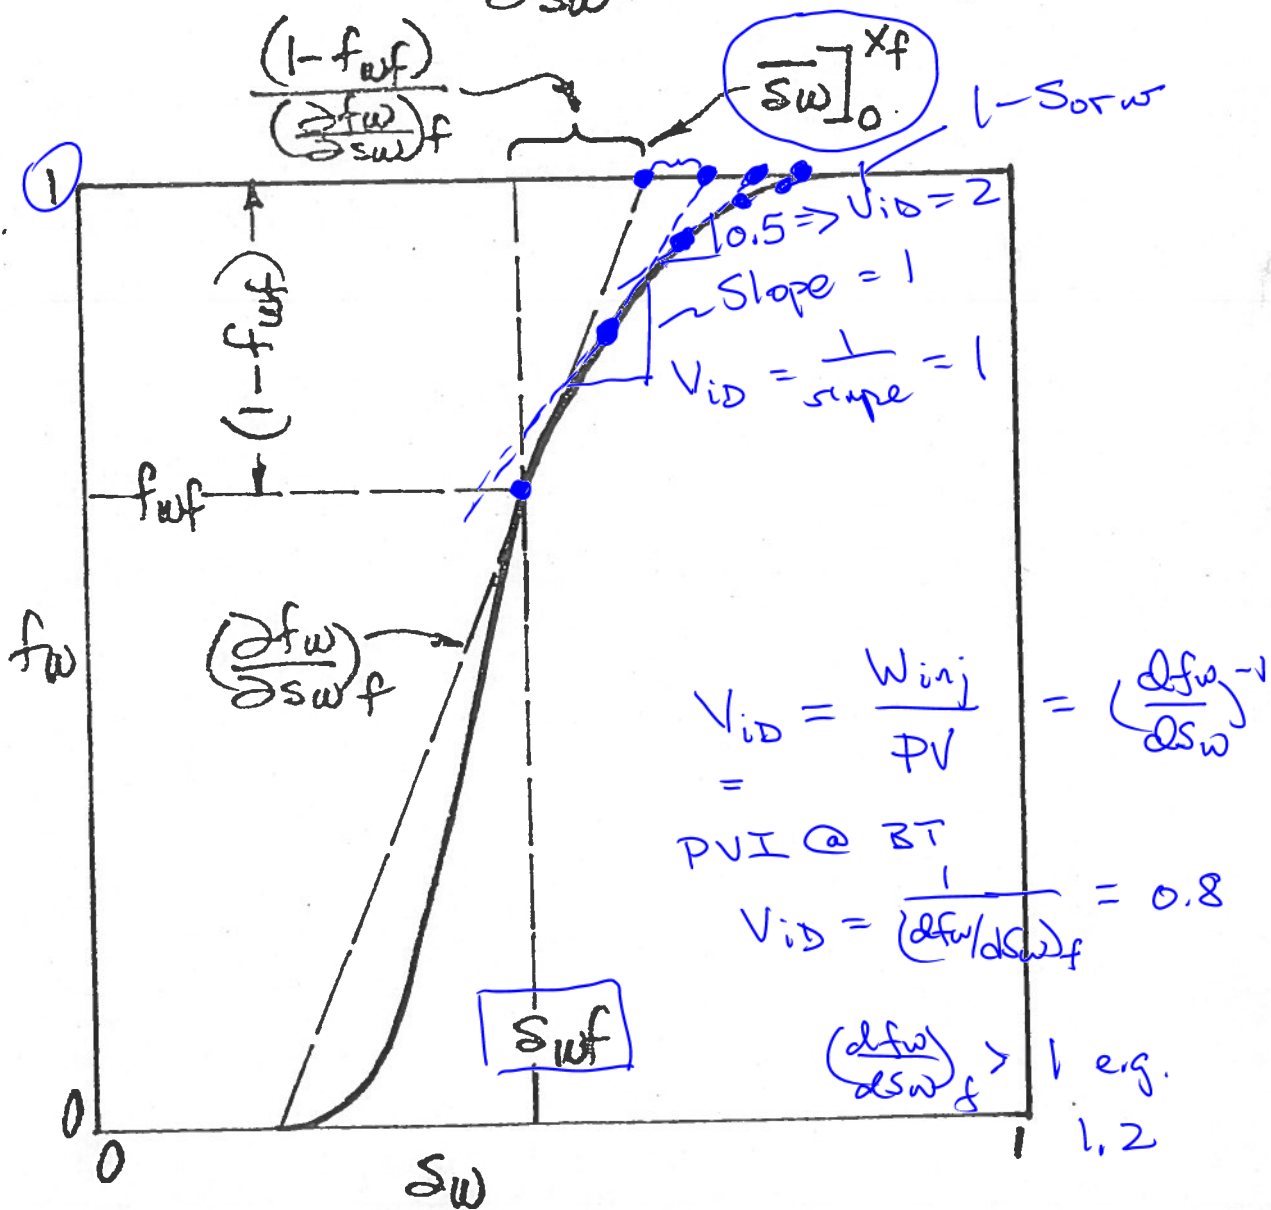 Sw
(1-fwf)
(∂fw/∂Sw)f
Sw]0^xf
1-Sorw
1
0.5 => ViD = 2
Slope = 1
ViD = 1/slope = 1
(1-fwf)
fwf
(∂fw/∂Sw)f
fw
ViD = Winj/PV = (dfw/dSw)^-1
=
PVI @ BT
ViD = 1/(dfw/dSw)f = 0.8
Swf
(dfw/dSw)f > 1 e.g.
1.2
0
0
1
Sw